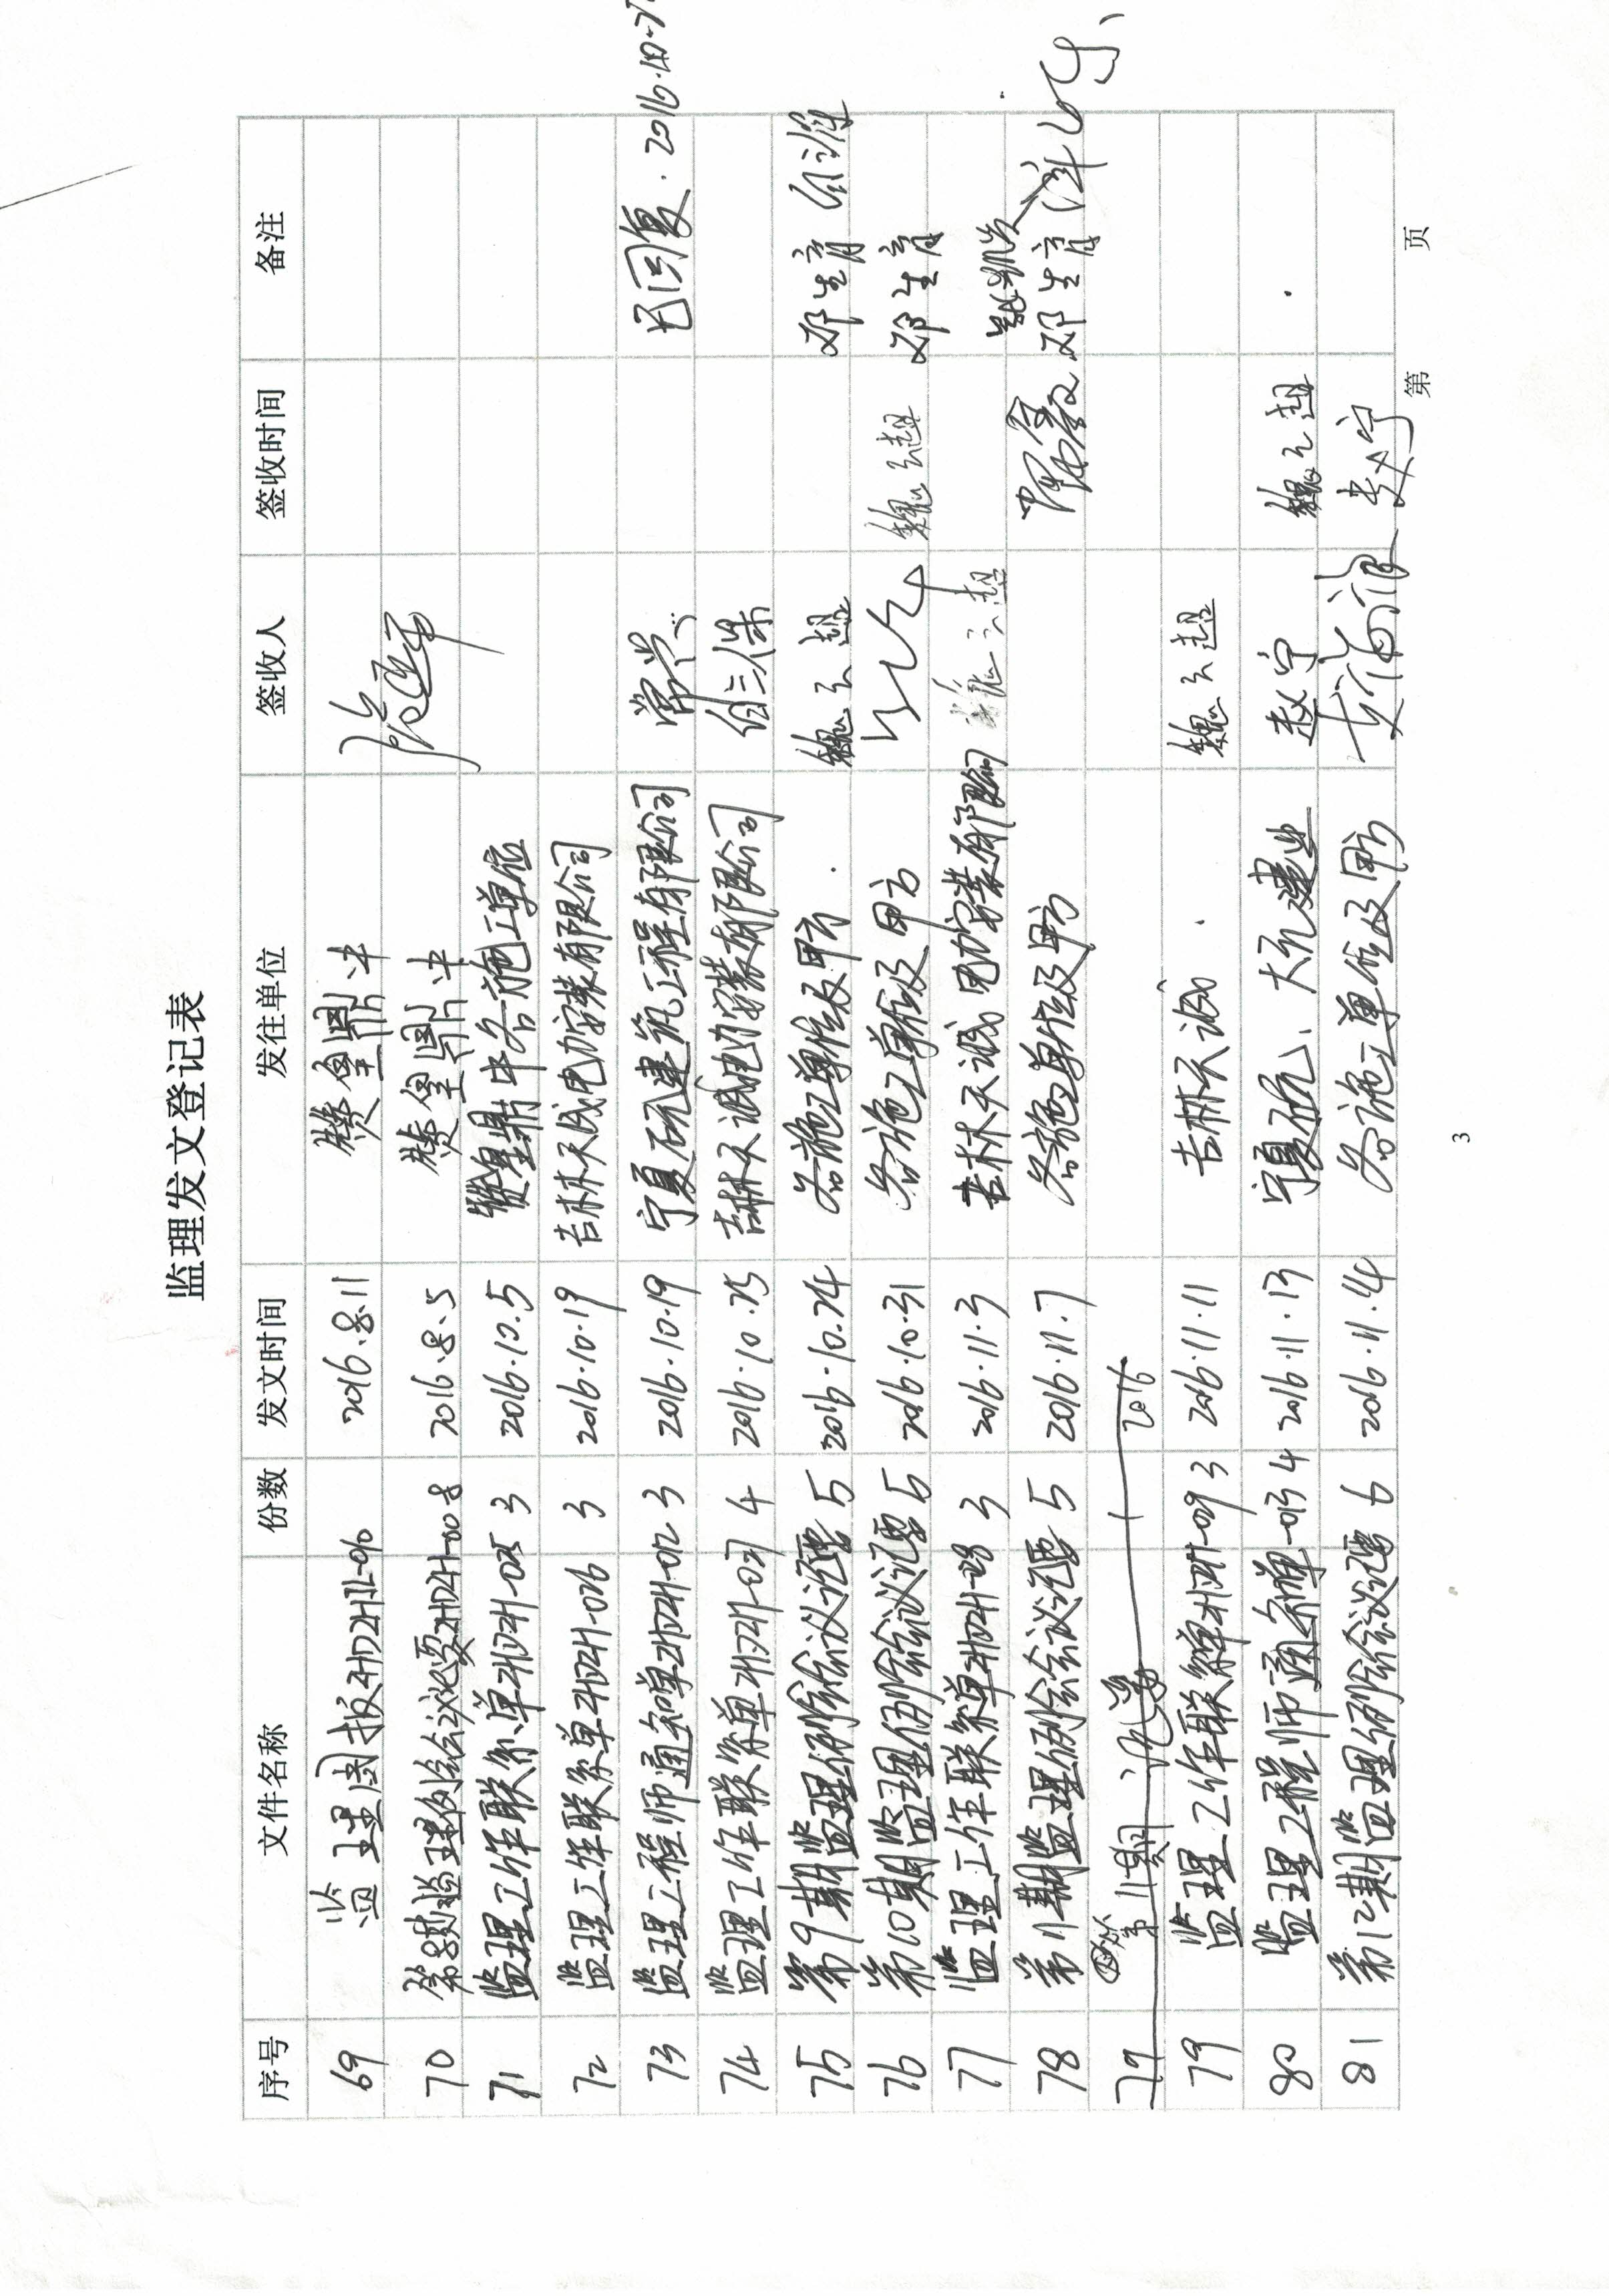 监理发文登记表
序号 文件名称 份数 发文时间 发往单位 签收人 签收时间 备注
69 监理周报 2016.8.11 赞皇鼎中
70 第8期监理例会会议纪要 2016.8.5 赞皇鼎中
71 监理工作联系单 -025 3 2016.10.5 赞皇鼎中各施工单位
72 监理工作联系单 -026 3 2016.10.19 吉林天诚电力安装有限公司
73 监理工程师通知单 -012 3 2016.10.19 宁夏石沆建筑工程有限公司 已回复.2016.10.2
74 监理工作联系单 -027 4 2016.10.25 吉林天诚电力安装有限公司
75 第9期监理例会会议纪要 5 2016.10.24 各施工单位及甲方 魏云超 邓生育
76 第10期监理例会会议纪要 5 2016.10.31 各施工单位及甲方 魏云超 邓生育
77 监理工作联系单 -028 3 2016.11.3 吉林天诚电力安装有限公司 魏云超
78 第11期监理例会会议纪要 5 2016.11.7 各施工单位及甲方 邓生育
79 第11期 2016
79 监理工作联系单 -029 3 2016.11.11 吉林天诚 魏云超
80 监理工程师通知单 -013 4 2016.11.13 宁夏石沆、大沆建业 赵宁 魏云超
81 第12期监理例会会议纪要 6 2016.11.14 各施工单位及甲方 赵宁
第 页
3